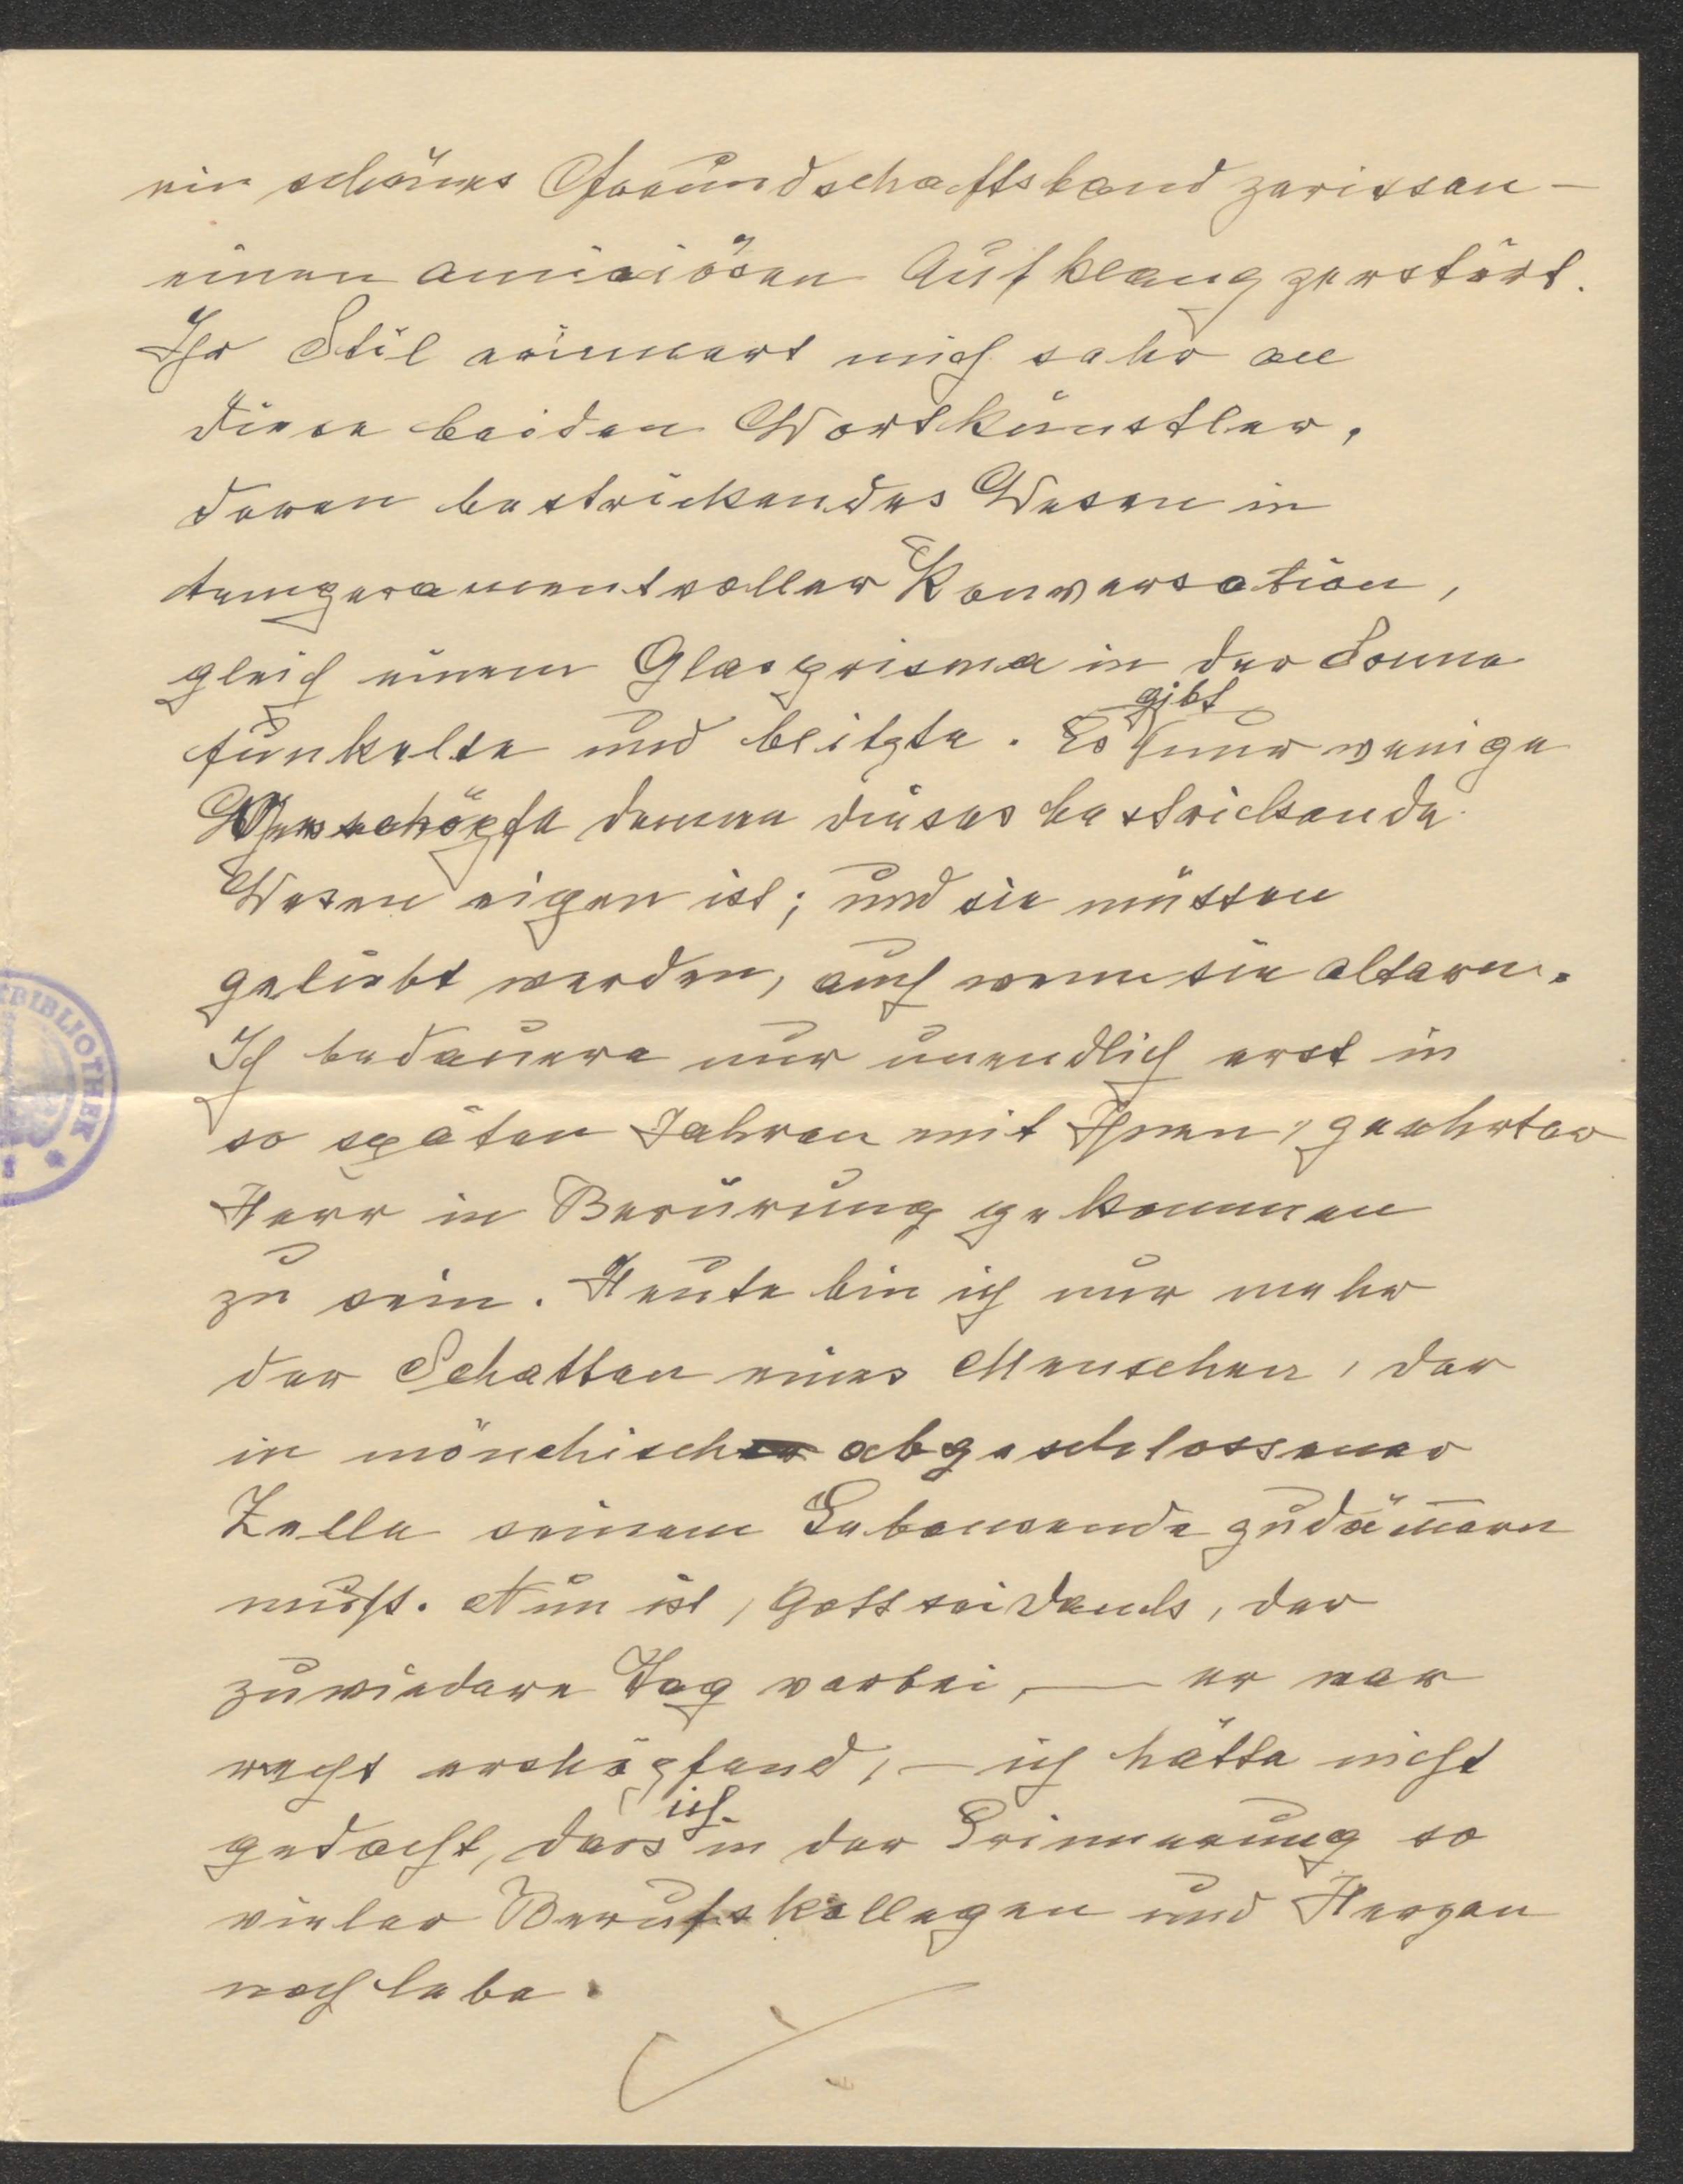 ein schönes Freundschaftsband zerissen –
einen amiciösen Aufklang zerstört.
Ihr Stil erinnert mich sehr an
diese beiden Wortkünstler,
deren bestrickendes Wesen in
temperamentvoller Konversation,
gleich einem Glasprisma in der Sonne
funkelte und blitzte. Es gibt nur wenige
Geschöpfe denen dieses bestrickende
Wesen eigen ist; und sie müssen
geliebt werden, auch wenn sie altern.
Ich bedauere nur unendlich erst in
so späten Jahren mit Ihnen, geehrter
Herr in Berürung gekommen
zu sein. Heute bin ich nur mehr
der Schatten eines Menschen, der
in mönchisch abgeschlossener
Zelle seinem Lebensende zudämmern
muß. Nun ist, Gott sei Dank, der
zuwiedere Tag vorbei, — er war
recht erschöpfend, – ich hätte nicht
gedacht, dass ich in der Erinnerung so
vieler Berufskollegen und Herzen
noch lebe.
BIBLIOTHEK